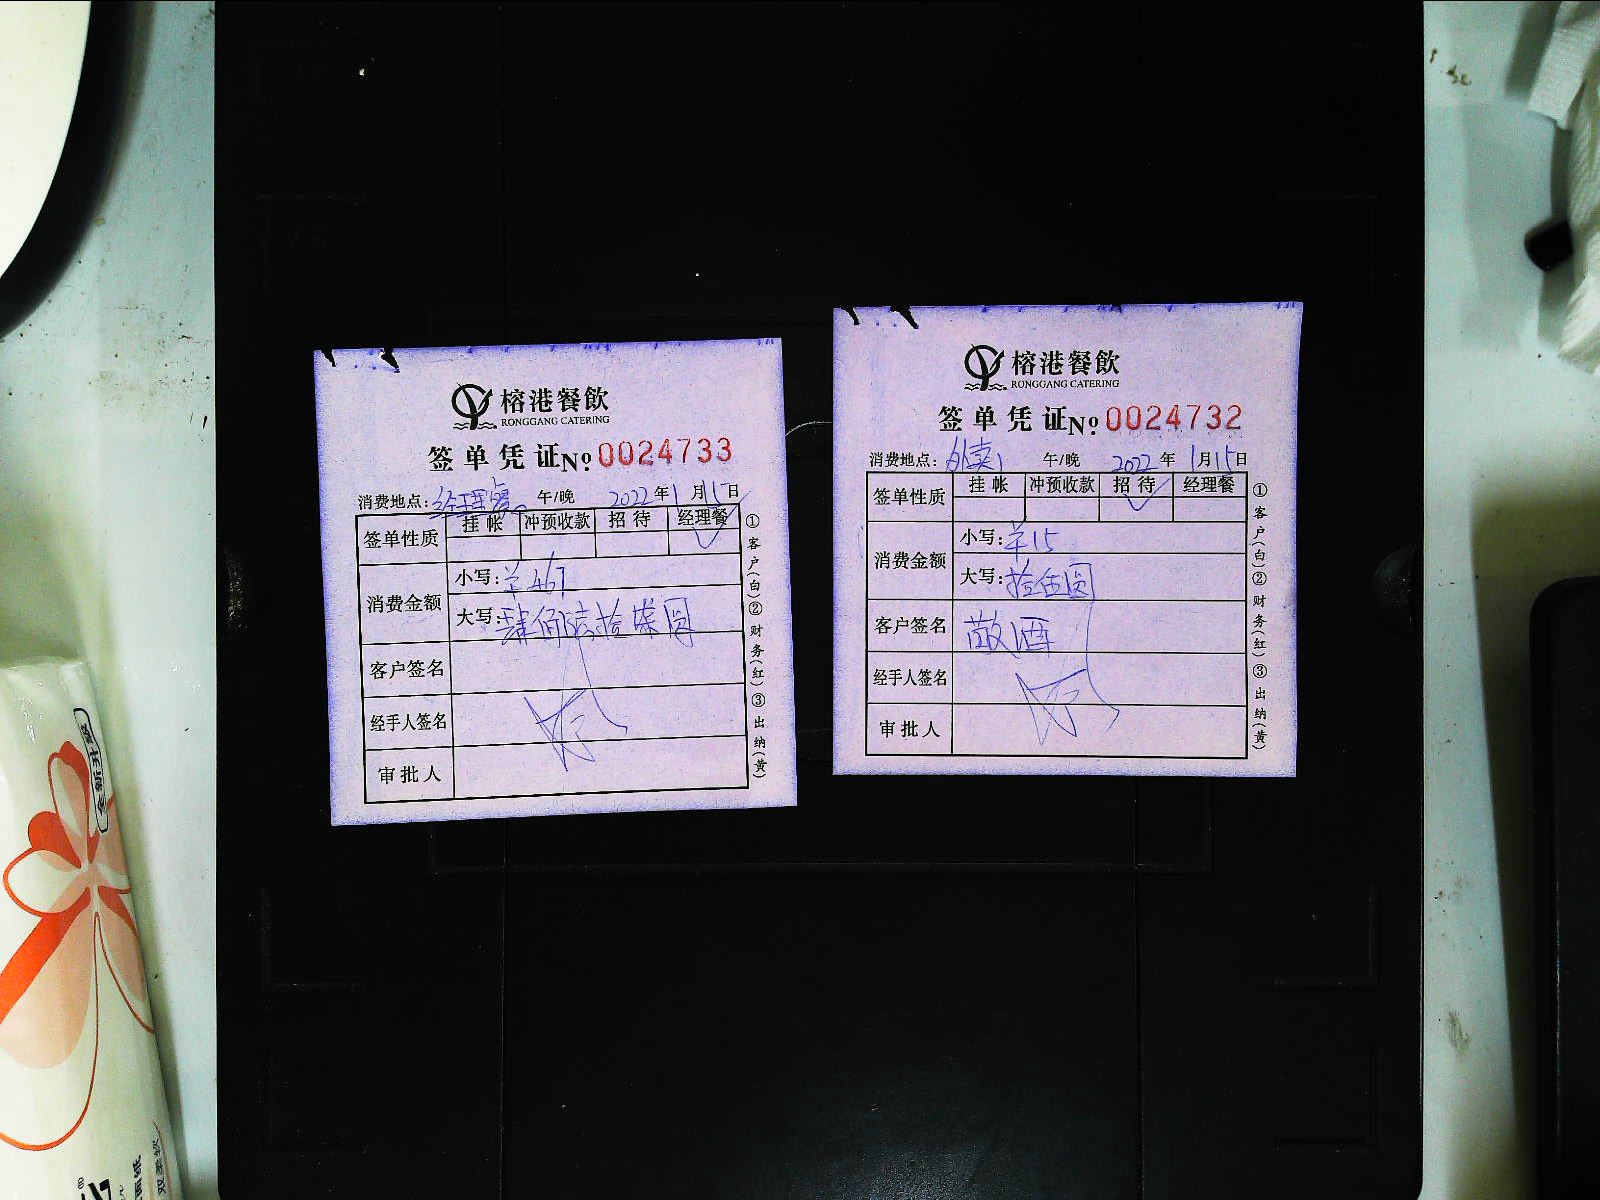 榕港餐飲
RONGGANG CATERING
签单凭证 No 0024733
消费地点: 经理餐 午/晚 2022年1月15日
签单性质 挂帐 冲预收款 招待 经理餐
消费金额
小写: ¥467
大写: 肆佰陆拾柒圆
客户签名
经手人签名
审批人
①客户(白)②财务(红)③出纳(黄)
榕港餐飲
RONGGANG CATERING
签单凭证 No 0024732
消费地点: 外卖1 午/晚 2022年1月15日
签单性质 挂帐 冲预收款 招待 经理餐
消费金额
小写: ¥15
大写: 拾伍圆
客户签名 敬酒
经手人签名
审批人
①客户(白)②财务(红)③出纳(黄)
全新升级